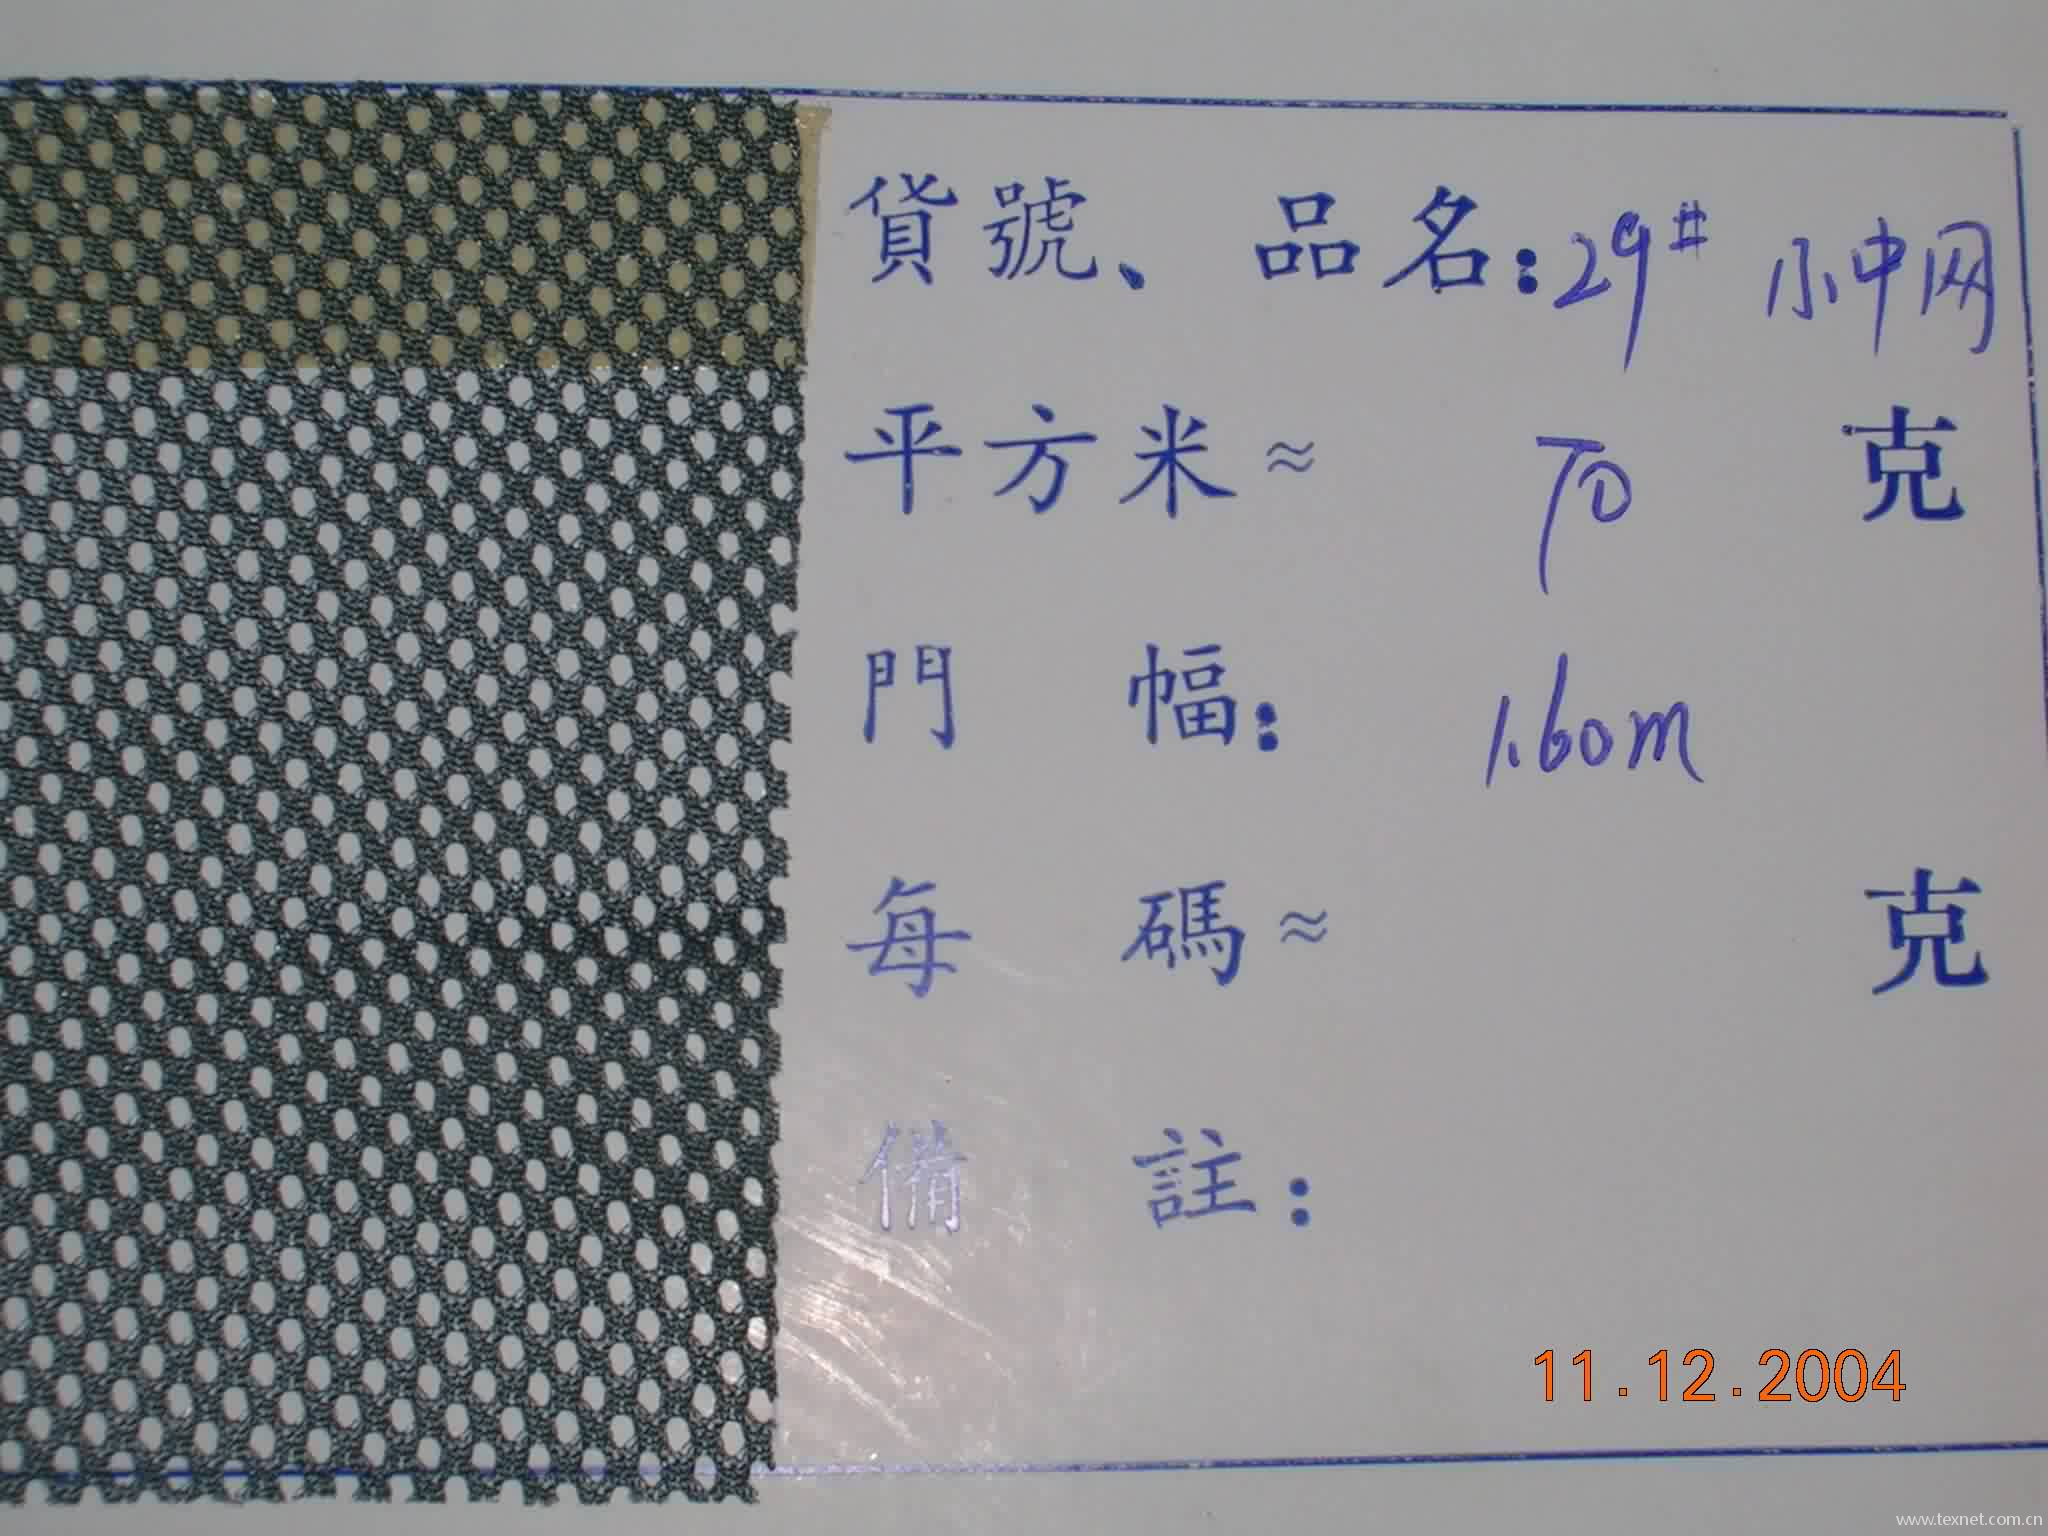 貨號、品名:29# 小中网
平方米≈ 70 克
門幅: 1.60m
每碼≈ 克
備註:
11.12.2004
www.texnet.com.cn